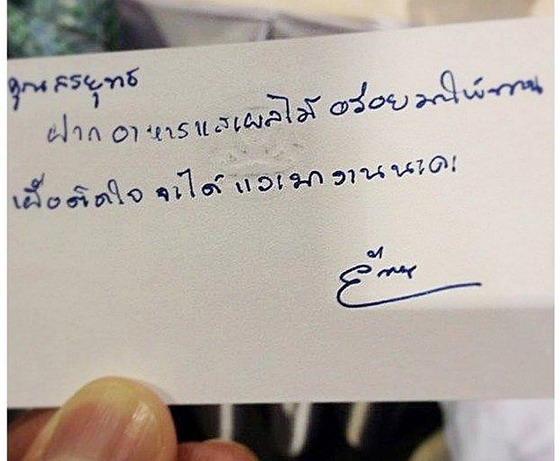 คุณ สรยุทธ
ฝาก อาหารและผลไม้ อร่อย มาให้ทาน
เผื่อติดใจ จะได้ แวะมา งานนะคะ